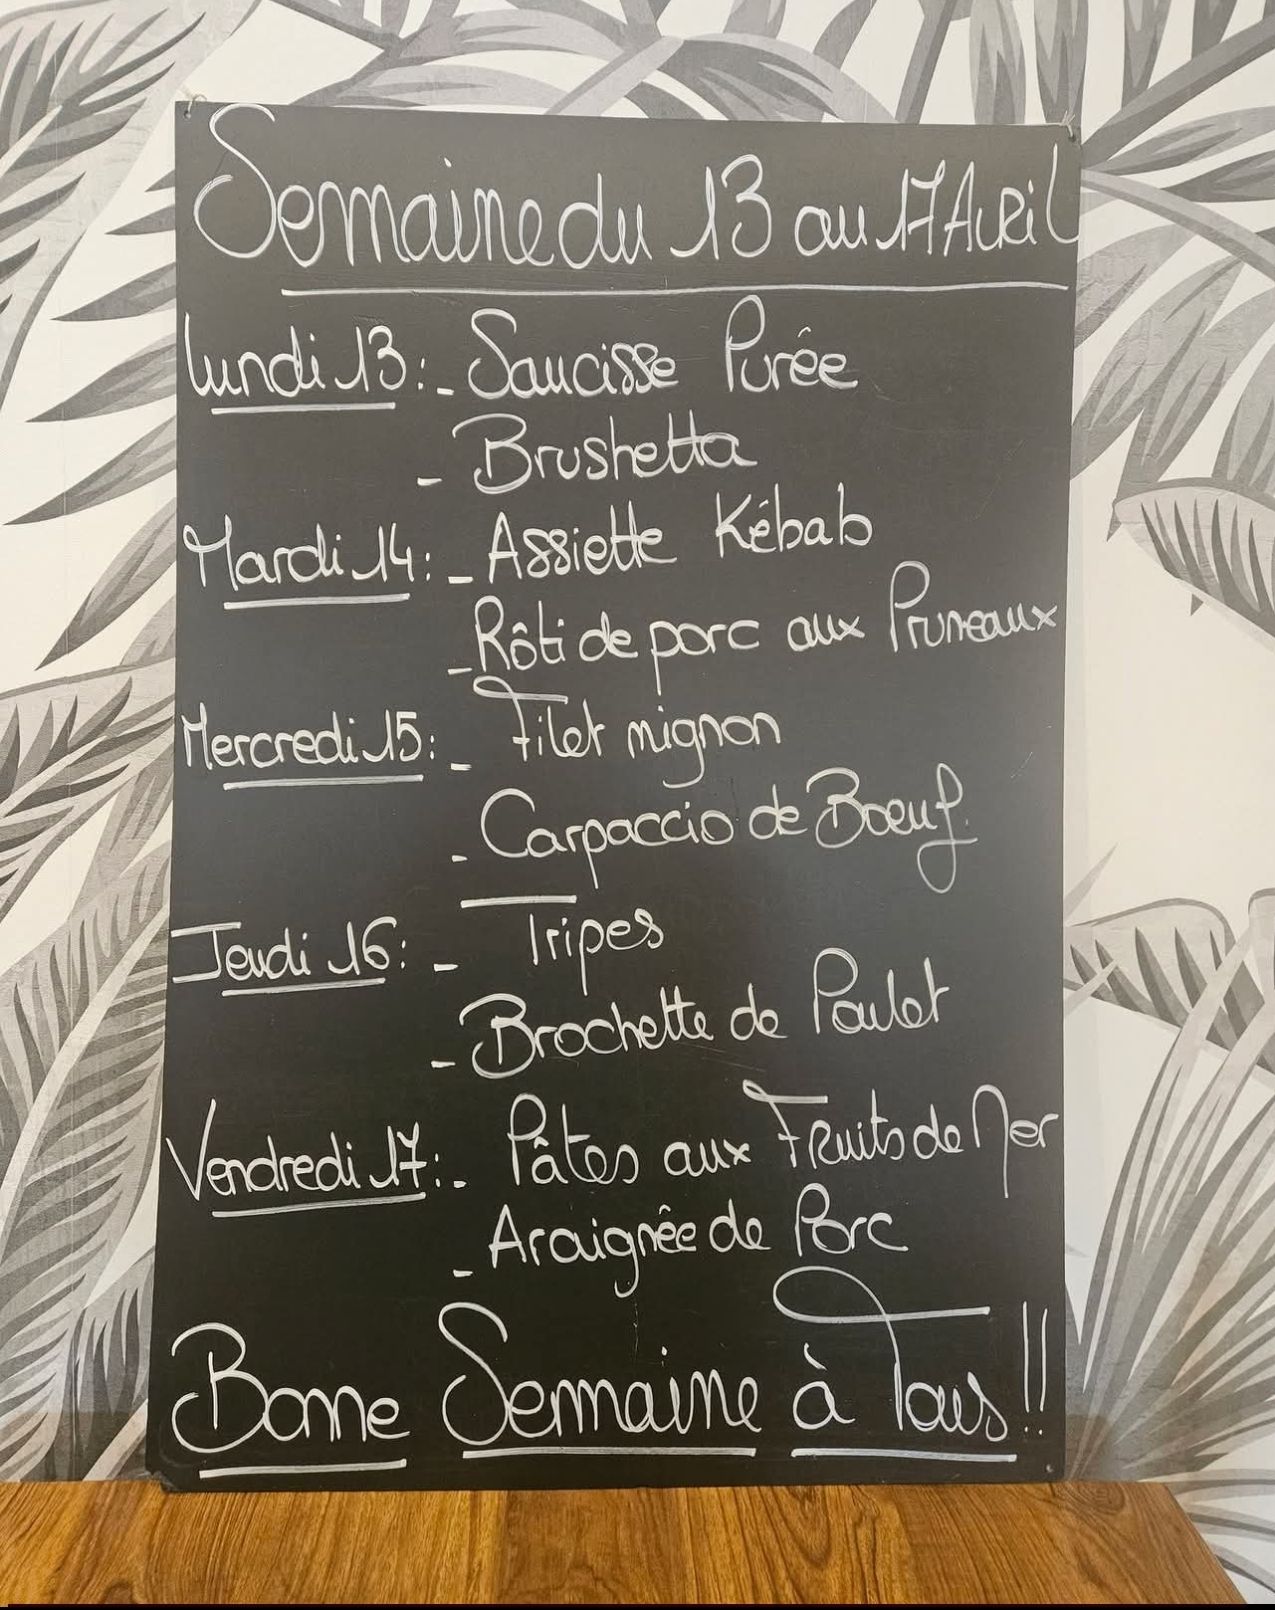 Semaine du 13 au 17 Avril
Lundi 13 : - Saucisse Purêe
- Brushetta
Mardi 14 : - Assiette Kébab
- Rôti de porc aux Pruneaux
Mercredi 15 : - Filet mignon
- Carpaccio de Boeuf.
Jeudi 16 : - Tripes
- Brochette de Poulet
Vendredi 17 : - Pâtes aux Fruits de Mer
- Araignêe de Porc
Bonne Semaine à Tous !!